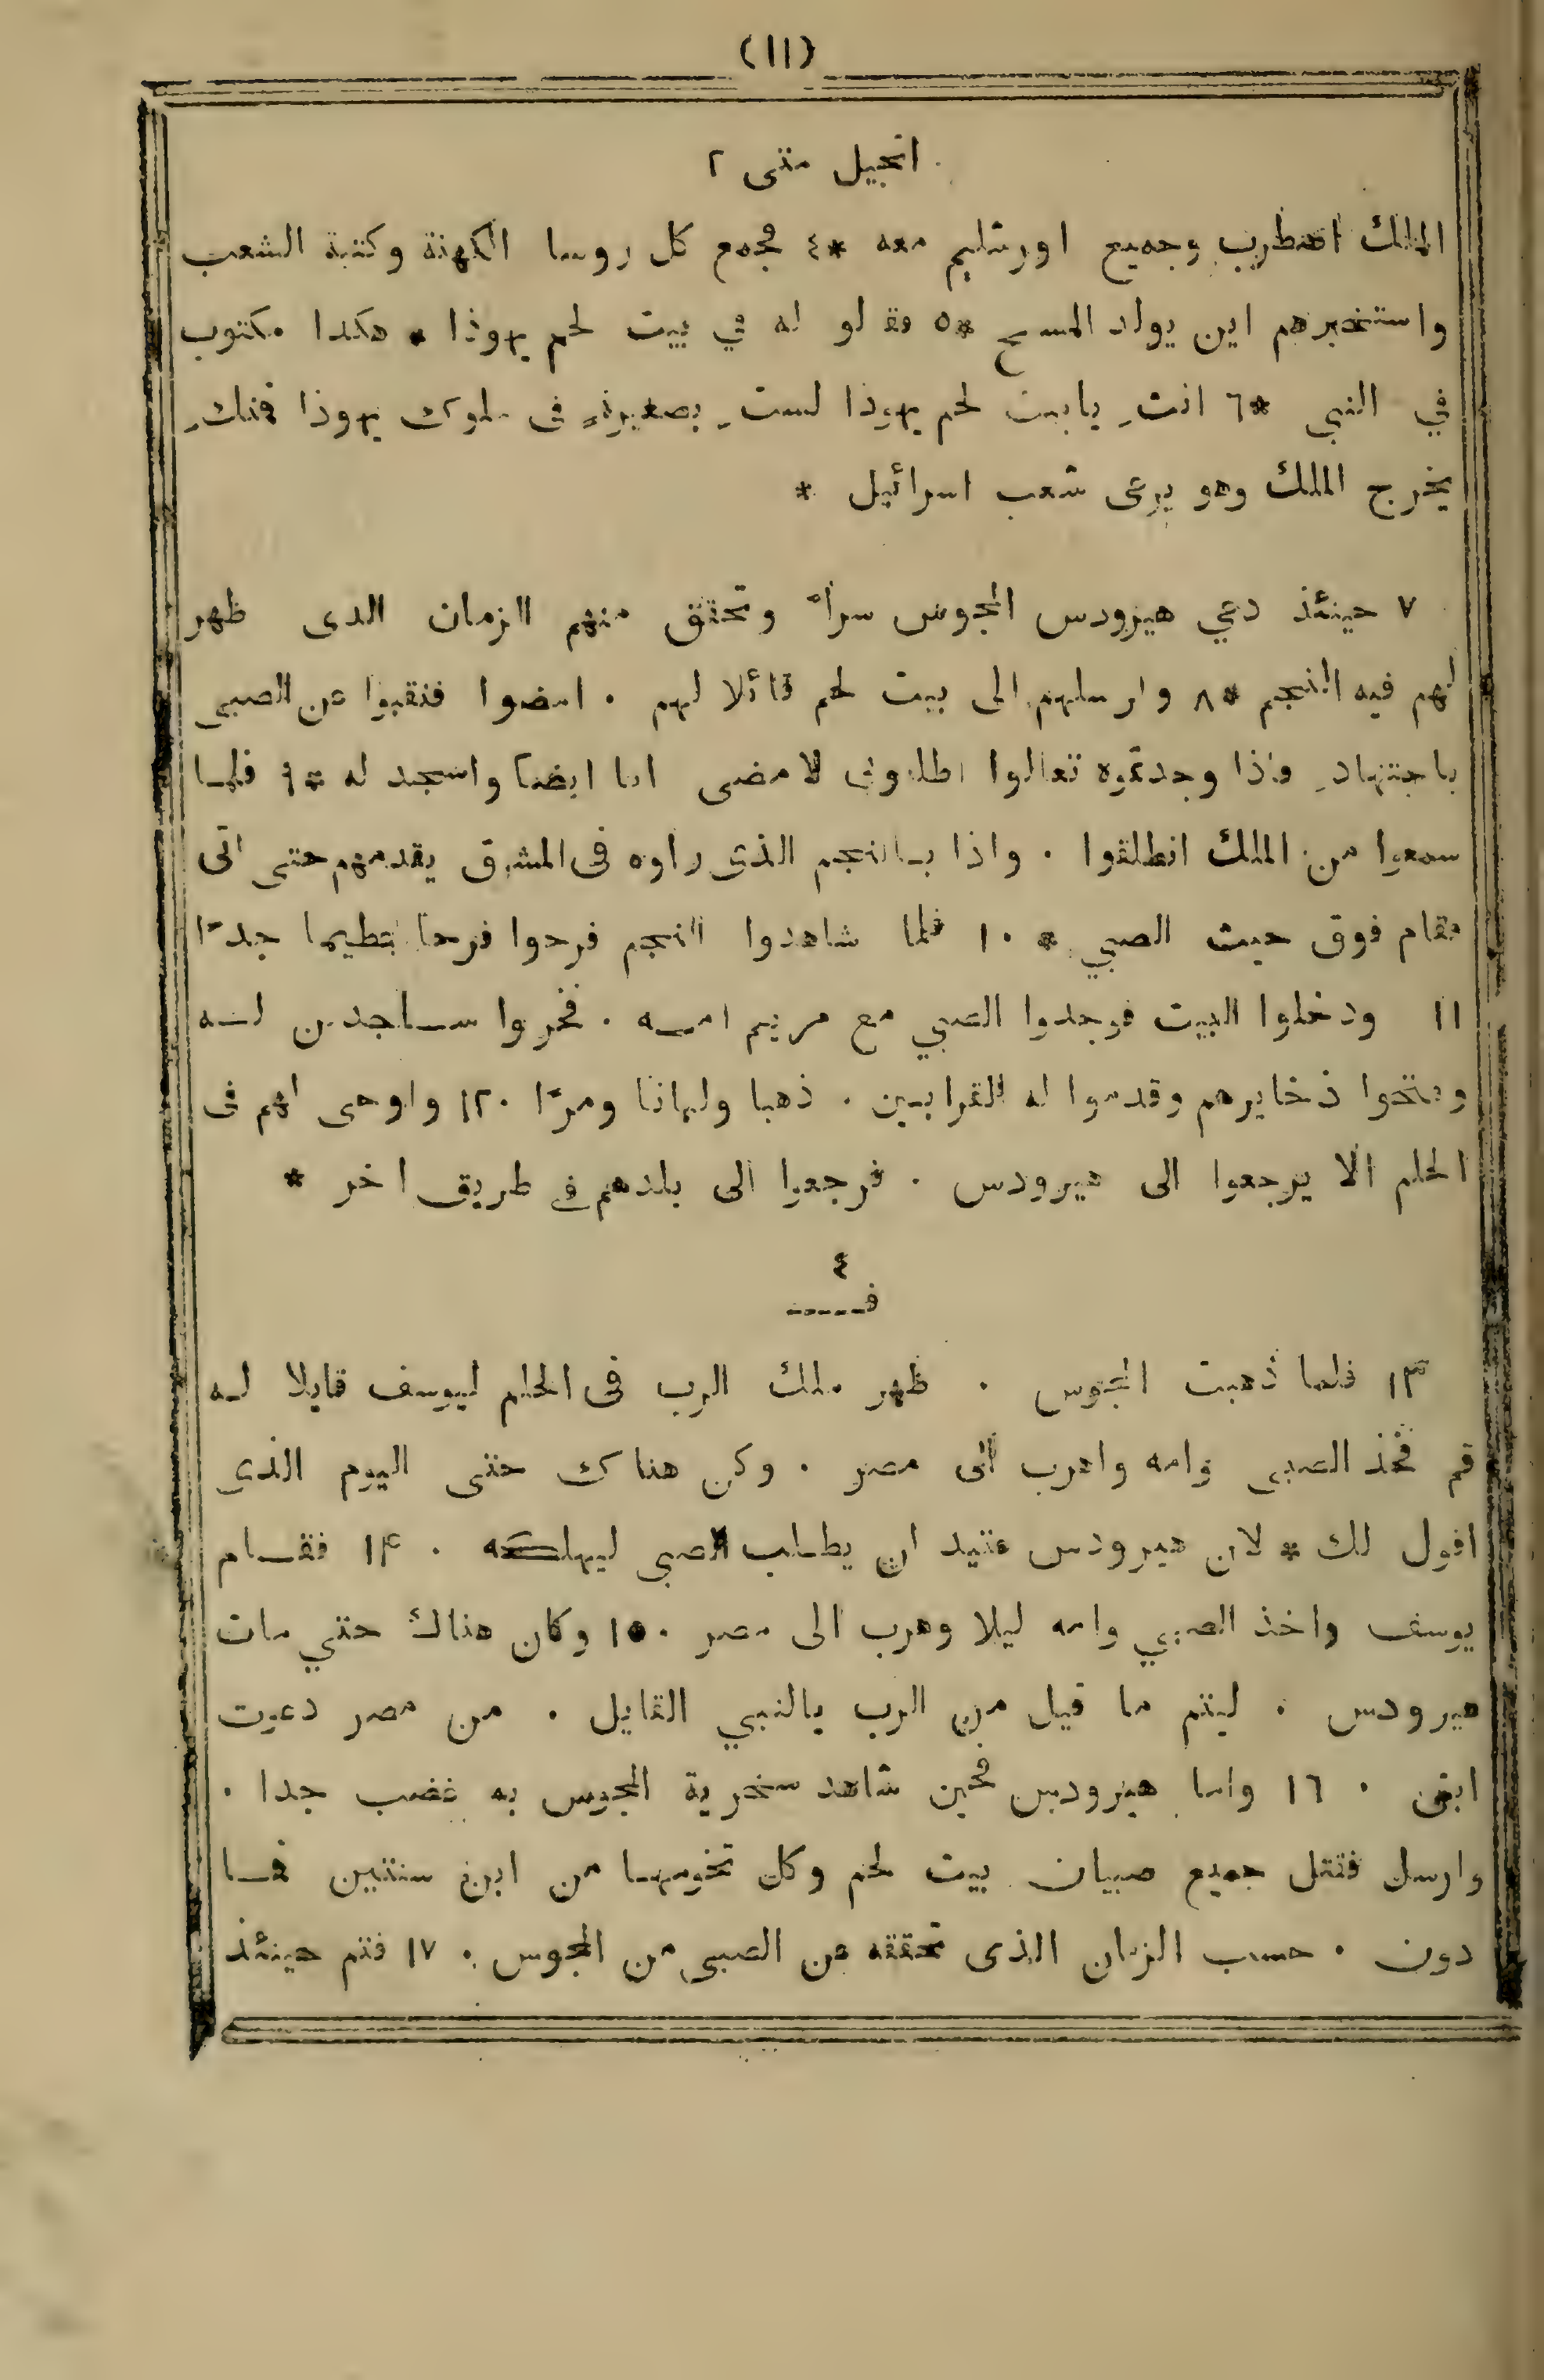 (١١)
انجيل متى ٢
الملك اضطرب وجميع اورشليم معه *٤ فجمع كل روسا الكهنة وكتبة الشعب
واستخبرهم اين يولد المسيح *٥ فقالو له في بيت لحم يهوذا * هكدا مكتوب
في النبي *٦ انتِ يابيت لحم يهوذا لستِ بصغيرةٍ فى ملوك يهوذا فمنكِ
يخرج الملك وهو يرعى شعب اسرائيل *
٧ حينئذ دعي هيرودس المجوس سراً وتحقق منهم الزمان الدى ظهر
لهم فيه النجم *٨ وارسلهم الى بيت لحم قائلا لهم . امضوا فنقبوا عن الصبى
باجتهادٍ فاذا وجدتموه تعالوا اطلاونى لامضى انا ايضا واسجد له *٩ فلما
سمعوا من الملك انطلقوا . واذا بالنجم الذى راوه فى المشرق يقدمهم حتى اتى
فقام فوق حيت الصبي * ١٠ فلما شاهدوا النجم فرحوا فرحا عظيما جدًا
١١ ودخلوا البيت فوجدوا الصبي مع مريم امه . فخروا ساجدين له
وفتحوا ذخايرهم وقدموا له القرابين . ذهبا ولبانا ومرًا .١٢ واوحى لهم فى
الحلم الا يرجعوا الى هيرودس . فرجعوا الى بلدهم في طريق اخر *
٤
فـ
١٣ فلما ذهبت المجوس . ظهر ملك الرب فى الحلم ليوسف قايلا له
قم فخذ الصبى وامه واهرب الى مصر . وكن هناك حتى اليوم الذى
اقول لك * لان هيرودس عتيد ان يطلب الصبى ليهلكه . ١٤ فقام
يوسف واخذ الصبي وامه ليلا وهرب الى مصر .١٥ وكان هناك حتي مات
هيرودس . ليتم ما قيل من الرب بالنبي القايل . من مصر دعوت
ابنى . ١٦ واما هيرودس فحين شاهد سخرية المجوس به غضب جدا .
وارسل فقتل جميع صبيان بيت لحم وكل تخومها من ابن سنتين فما
دون . حسب الزمان الذى تحققه عن الصبى من المجوس . ١٧ فتم حينئذ